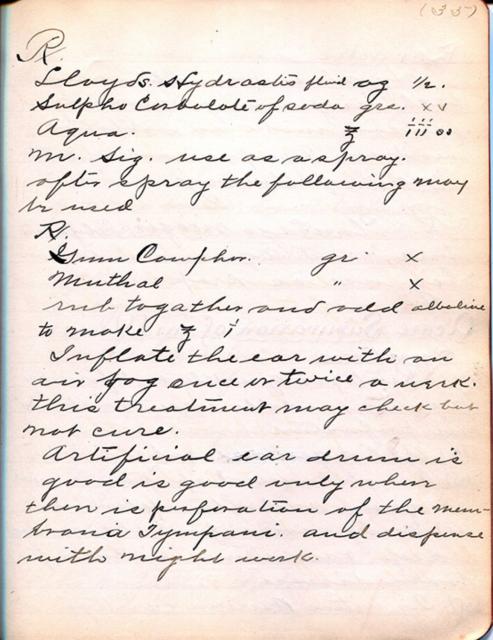 (35)
R.
Lloyds Hydrastis fluid oz ½.
Sulpho Carbolate of soda grs. xv
Aqua. ℥ iii ss
M. Sig. use as a spray.
after spray the following may
be used
R.
Gum Camphor. gr x
Muthal " x
rub together and add alboline
to make ℥ i
Inflate the ear with an
air bag once or twice a week.
this treatment may check but
not cure.
Artificial ear drum is
good is good only when
then is perforation of the mem-
brania Tympani. and dispense
with night work.